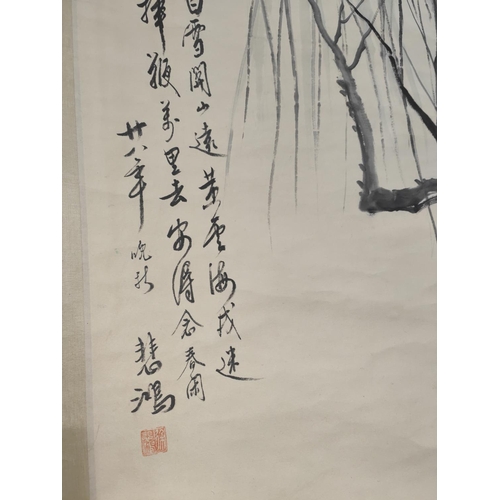 白雪關山遠黃雲海戍迷
揮鞭萬里去安得念春閨
廿八年晚秋
悲鴻